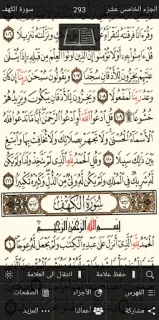 سورة الكهف 293 الجزء الخامس عشر
وَقُرْءَانًا فَرَقْنَٰهُ لِتَقْرَأَهُۥ وَنَزَّلْنَٰهُ تَنزِيلًا ١٠٦
قُلْ ءَامِنُوا۟ بِهِۦٓ أَوْ لَا تُؤْمِنُوٓا۟ إِنَّ ٱلَّذِينَ أُوتُوا۟ ٱلْعِلْمَ مِن قَبْلِهِۦٓ إِذَا يُتْلَىٰ
عَلَيْهِمْ يَخِرُّونَ لِلْأَذْقَانِ سُجَّدًا ١٠٧ وَيَقُولُونَ سُبْحَٰنَ رَبِّنَآ إِن كَانَ
وَعْدُ رَبِّنَا لَمَفْعُولًا ١٠٨ وَيَخِرُّونَ لِلْأَذْقَانِ يَبْكُونَ وَيَزِيدُهُمْ
خُشُوعًا ۩ ١٠٩ قُلِ ٱدْعُوا۟ ٱللَّهَ أَوِ ٱدْعُوا۟ ٱلرَّحْمَٰنَ أَيًّا مَّا تَدْعُوا۟ فَلَهُ
ٱلْأَسْمَآءُ ٱلْحُسْنَىٰ وَلَا تَجْهَرْ بِصَلَاتِكَ وَلَا تُخَافِتْ بِهَا وَٱبْتَغِ
بَيْنَ ذَٰلِكَ سَبِيلًا ١١٠ وَقُلِ ٱلْحَمْدُ لِلَّهِ ٱلَّذِى لَمْ يَتَّخِذْ وَلَدًا وَلَمْ يَكُن
لَّهُۥ شَرِيكٌ فِى ٱلْمُلْكِ وَلَمْ يَكُن لَّهُۥ وَلِىٌّ مِّنَ ٱلذُّلِّ وَكَبِّرْهُ تَكْبِيرًا ١١١
سُورَةُ الكَهْفِ
بِسْمِ ٱللَّهِ ٱلرَّحْمَٰنِ ٱلرَّحِيمِ
ٱلْحَمْدُ لِلَّهِ ٱلَّذِىٓ أَنزَلَ عَلَىٰ عَبْدِهِ ٱلْكِتَٰبَ وَلَمْ يَجْعَل لَّهُۥ عِوَجَا ١
حفظ علامة انتقال الى العلامة
الفهرس الأجزاء الصفحات
مشاركة أعمالنا المزيد